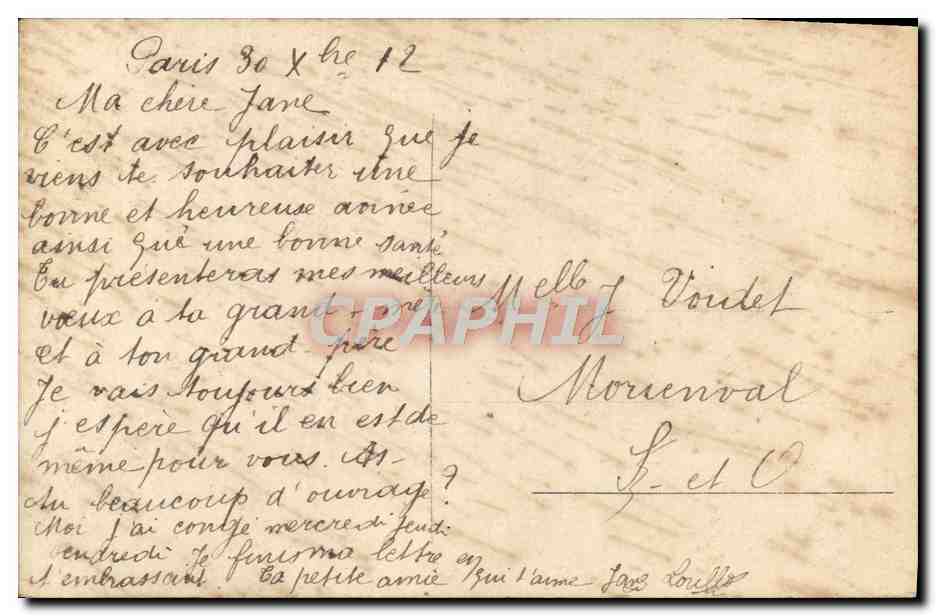 Paris 30 Xbre 12
Ma chère Jane
C'est avec plaisir que je
viens te souhaiter une
bonne et heureuse année
ainsi que une bonne santé
Tu présenteras mes meilleurs
vœux a ta grand-mère
et à ton grand-père
Je vais toujours bien
j'espère qu'il en est de
même pour vous. As-
tu beaucoup d'ouvrage?
Moi j'ai congé mercredi jeudi
vendredi Je finis ma lettre en
t'embrassant. Ta petite amie qui t'aime Jane
Melle J Voudet
Morienval
S-et O
CPAPHIL